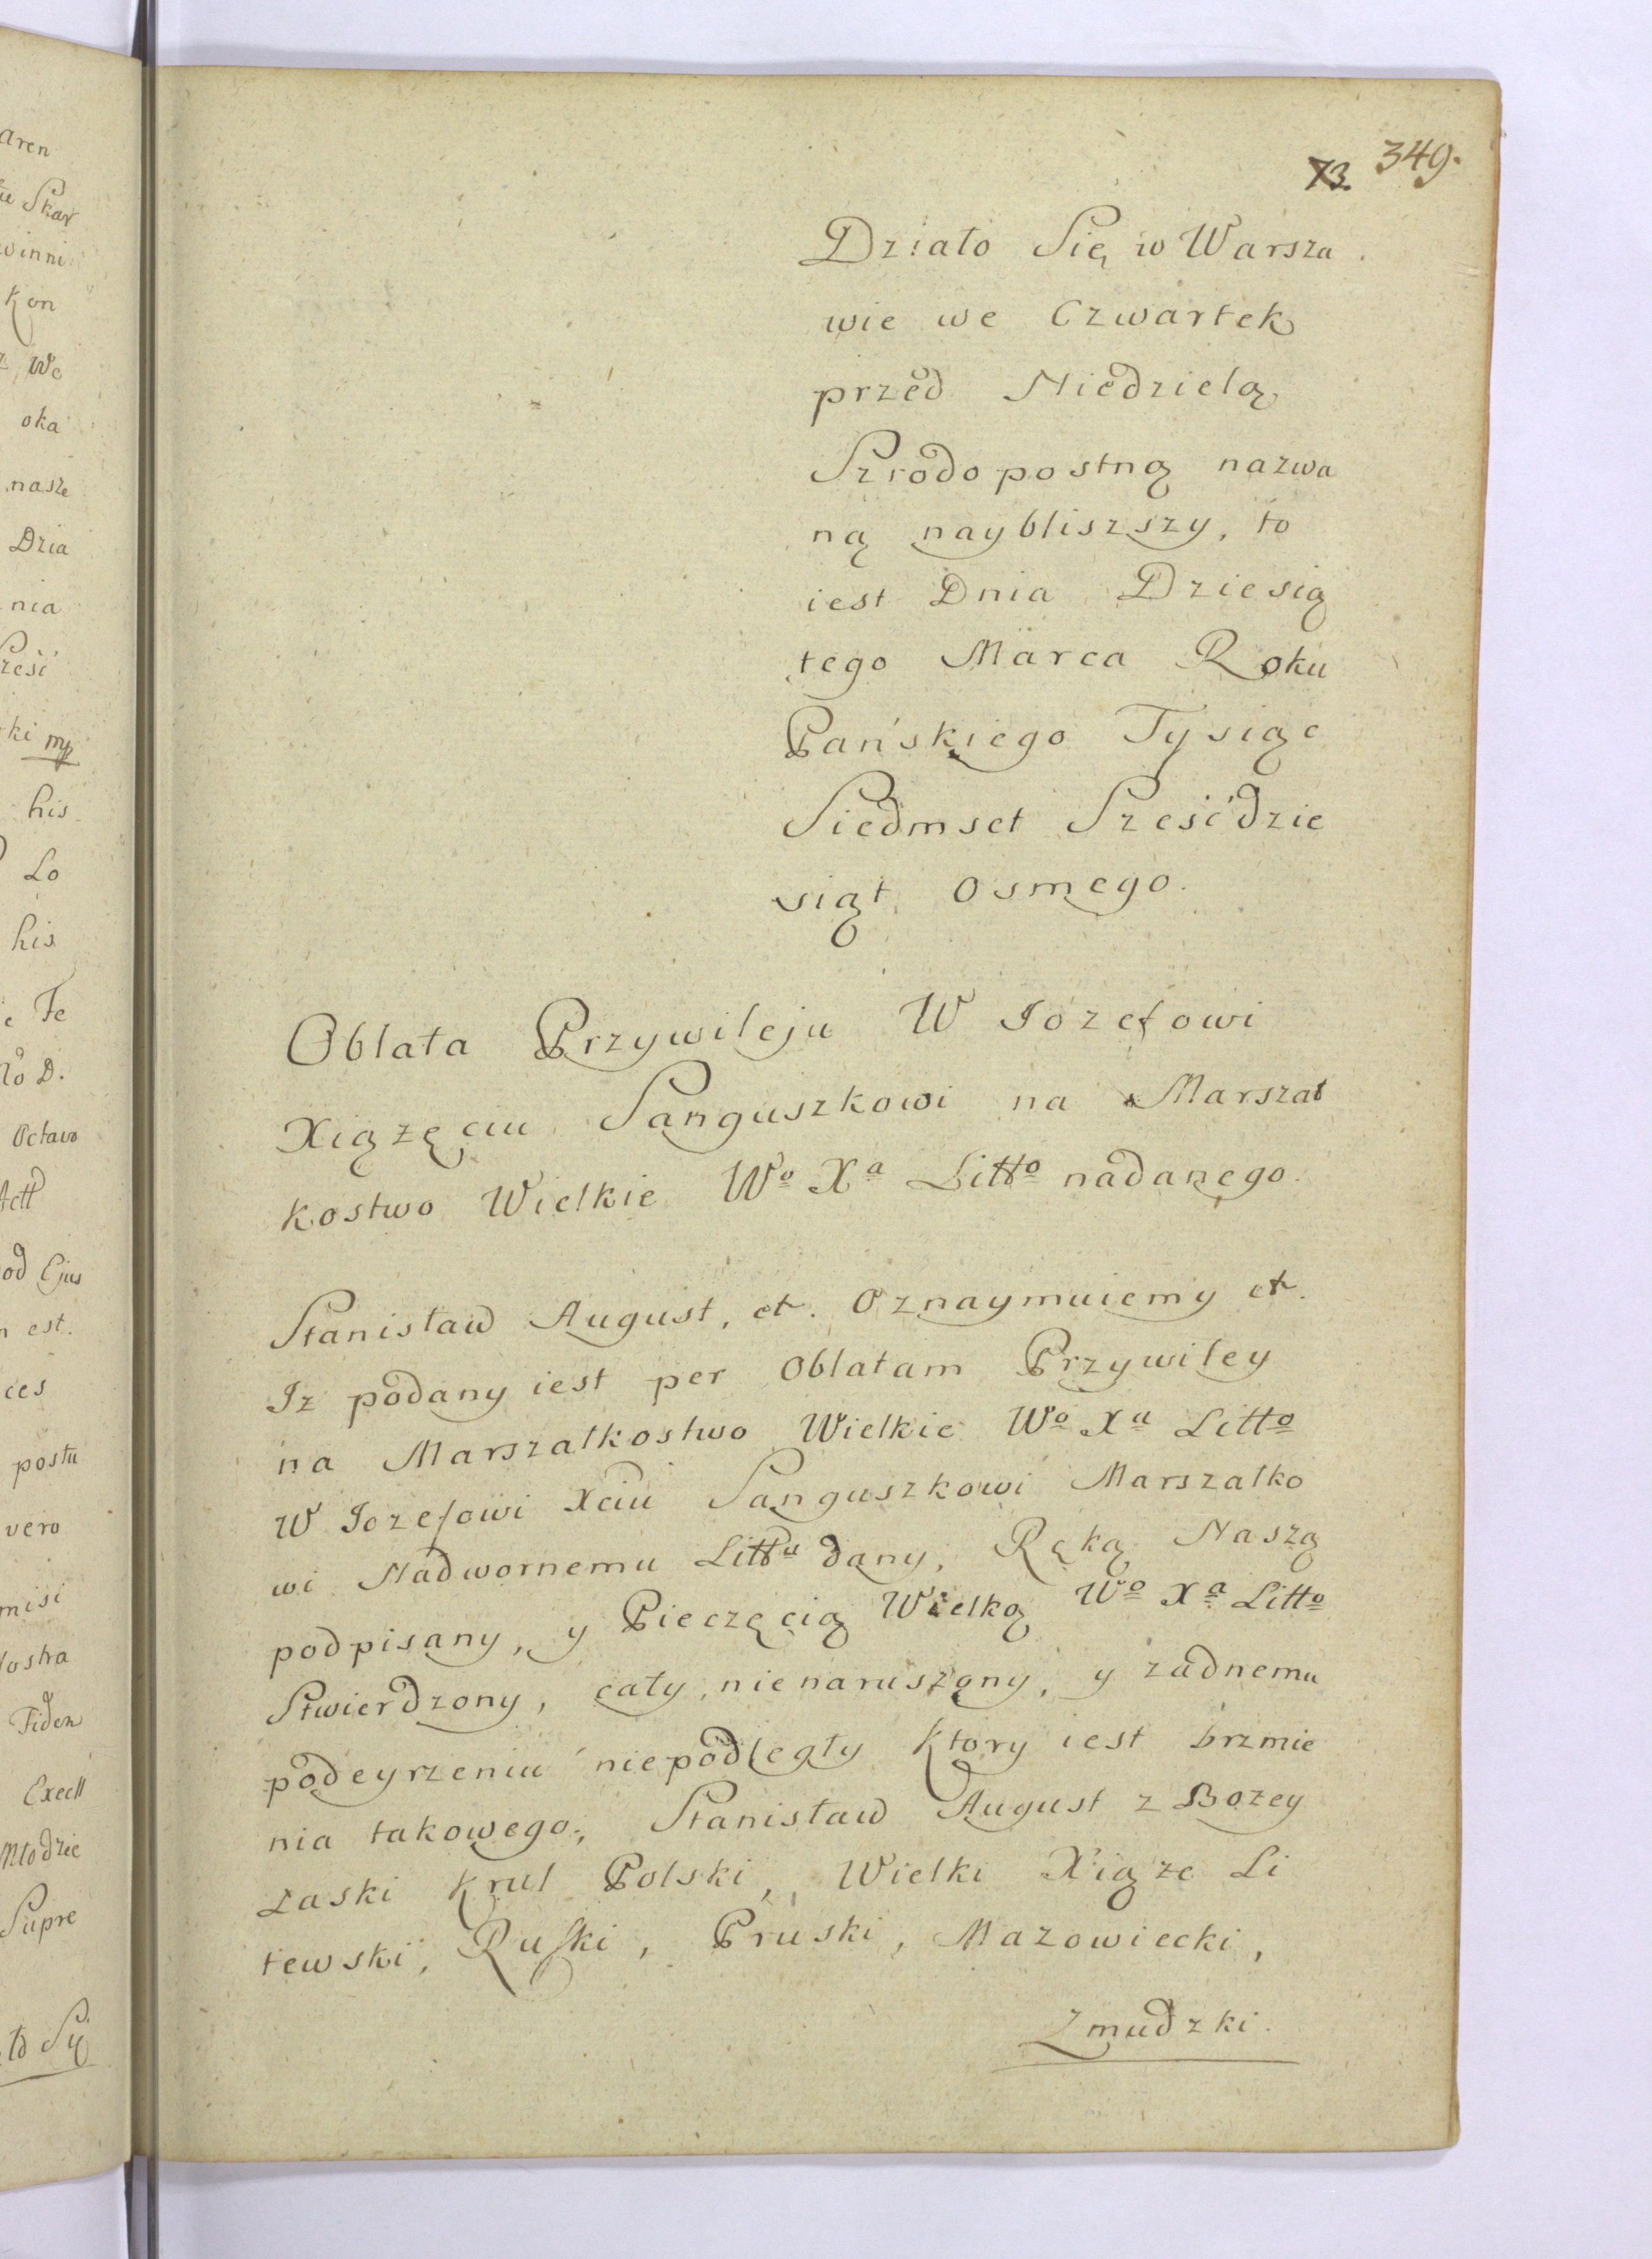 73. 349.
Działo Się w Warsza
wie we Czwartek
przed Niedzielą
Szrodopostną nazwa
ną naybliszszy, to
iest Dnia Dziesią
tego Marca Roku
Pańskiego Tysiąc
Siedmset Sześćdzie
siąt osmego.
Oblata Przywileju W Iozefowi
Xiązęciu Sanguszkowi na Marszał
kostwo Wielkie Wo Xa Litto nadanego.
Stanisław August, et. Oznaymuiemy et.
Iz podany iest per Oblatam Przywiley
na Marszałkostwo Wielkie Wo Xa Litto
W Iozefowi Xciu Sanguszkowi Marszałko
wi Nadwornemu Littu dany, Ręką Naszą
podpisany, y Pieczęcią Wielką Wo Xa Litto
Stwierdzony, cały, nienaruszony, y zadnemu
podeyrzeniu niepodległy ktory iest brzmie
nia takowego; Stanisław August z Bozey
Łaski Krul Polski, Wielki Xiąze Li
tewski, Ruski, Pruski, Mazowiecki,
Zmudzki.
aren
winni
Kon
We
oka
nasze
Dzia
nia
ki mp
his
Lo
his
Fe
Octavo
od Ejus
est.
ces
postu
vero
misi
Fidem
Młodzie
Supre